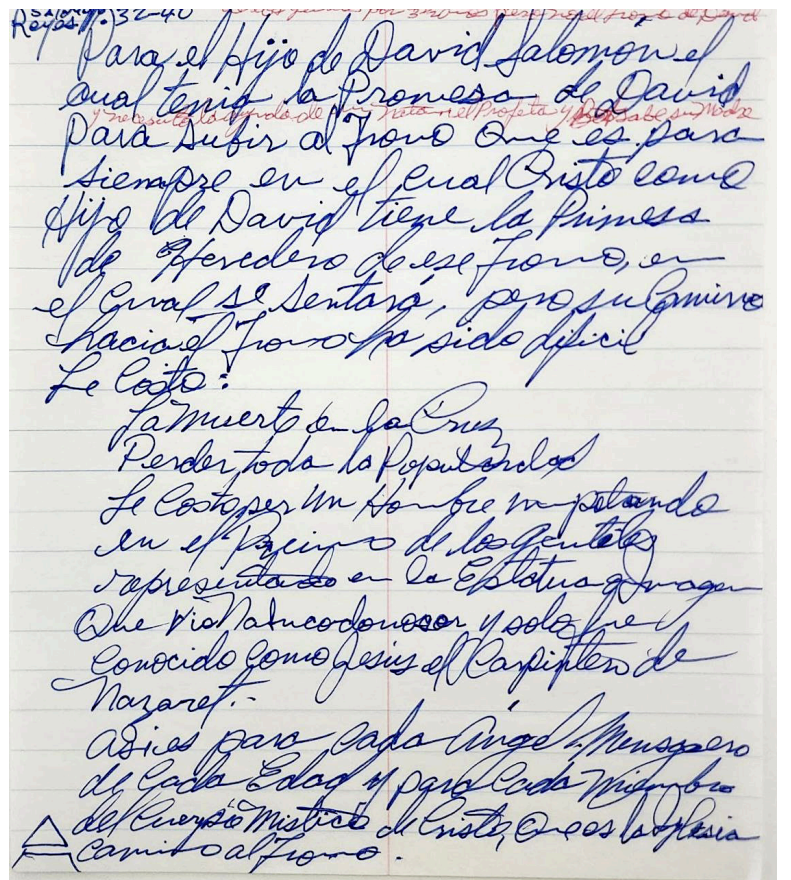 Reyes 11:32-40
por 3 años pero no el Trono de David
Para el Hijo de David Salomón el
cual tenia la Promesa de David
y necesitó la ayuda de Natan el Profeta y su Madre
para subir al Trono que es para
siempre en el cual Cristo como
Hijo de David tiene la Primesa
de Heredero de ese Trono, en
el cual se sentará, pero su Camino
hacia el Trono ha sido dificil
Le Costo:
La Muerte en la Cruz
Perder toda la Popularidad
Le Costo ser un Hombre
en el Reino de los Gentiles
representado en la Estatua o Imagen
Que vio Nabucodonosor y solo fue
Conocido como Jesus el Carpintero de
Nazaret.-
Asi es para cada Ángel Mensajero
de Cada Edad y para Cada Miembro
del Cuerpo Mistico de Cristo, Que es la Iglesia
Camino al Trono.